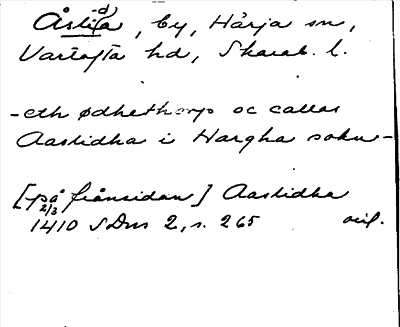 Åslida (-d), by, Hårja sn,
Vartofta hd, Skarab. l.
-eth ødhethorp oc callas
Aaslidha i Hargha sokn-
[på frånsidan] Aaslidha
1410 2/3 SDns 2, s. 265 orig.